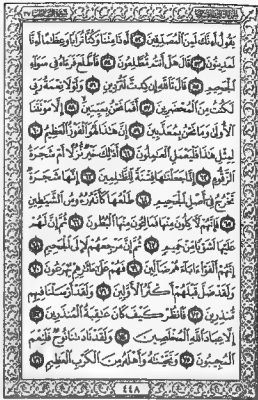 يَقُولُ أَءِنَّكَ لَمِنَ ٱلْمُصَدِّقِينَ ٥٢ أَءِذَا مِتْنَا وَكُنَّا تُرَابًا وَعِظَٰمًا أَءِنَّا
لَمَدِينُونَ ٥٣ قَالَ هَلْ أَنتُم مُّطَّلِعُونَ ٥٤ فَٱطَّلَعَ فَرَءَاهُ فِى سَوَآءِ
ٱلْجَحِيمِ ٥٥ قَالَ تَٱللَّهِ إِن كِدتَّ لَتُرْدِينِ ٥٦ وَلَوْلَا نِعْمَةُ رَبِّى
لَكُنتُ مِنَ ٱلْمُحْضَرِينَ ٥٧ أَفَمَا نَحْنُ بِمَيِّتِينَ ٥٨ إِلَّا مَوْتَتَنَا
ٱلْأُولَىٰ وَمَا نَحْنُ بِمُعَذَّبِينَ ٥٩ إِنَّ هَٰذَا لَهُوَ ٱلْفَوْزُ ٱلْعَظِيمُ ٦٠
لِمِثْلِ هَٰذَا فَلْيَعْمَلِ ٱلْعَٰمِلُونَ ٦١ أَذَٰلِكَ خَيْرٌ نُّزُلًا أَمْ شَجَرَةُ
ٱلزَّقُّومِ ٦٢ إِنَّا جَعَلْنَٰهَا فِتْنَةً لِّلظَّٰلِمِينَ ٦٣ إِنَّهَا شَجَرَةٌ
تَخْرُجُ فِىٓ أَصْلِ ٱلْجَحِيمِ ٦٤ طَلْعُهَا كَأَنَّهُۥ رُءُوسُ ٱلشَّيَٰطِينِ
٦٥ فَإِنَّهُمْ لَءَاكِلُونَ مِنْهَا فَمَالِـُٔونَ مِنْهَا ٱلْبُطُونَ ٦٦ ثُمَّ إِنَّ لَهُمْ
عَلَيْهَا لَشَوْبًا مِّنْ حَمِيمٍ ٦٧ ثُمَّ إِنَّ مَرْجِعَهُمْ لَإِلَى ٱلْجَحِيمِ ٦٨
إِنَّهُمْ أَلْفَوْا۟ ءَابَآءَهُمْ ضَآلِّينَ ٦٩ فَهُمْ عَلَىٰٓ ءَاثَٰرِهِمْ يُهْرَعُونَ ٧٠
وَلَقَدْ ضَلَّ قَبْلَهُمْ أَكْثَرُ ٱلْأَوَّلِينَ ٧١ وَلَقَدْ أَرْسَلْنَا فِيهِم
مُّنذِرِينَ ٧٢ فَٱنظُرْ كَيْفَ كَانَ عَٰقِبَةُ ٱلْمُنذَرِينَ ٧٣
إِلَّا عِبَادَ ٱللَّهِ ٱلْمُخْلَصِينَ ٧٤ وَلَقَدْ نَادَىٰنَا نُوحٌ فَلَنِعْمَ
ٱلْمُجِيبُونَ ٧٥ وَنَجَّيْنَٰهُ وَأَهْلَهُۥ مِنَ ٱلْكَرْبِ ٱلْعَظِيمِ ٧٦
٤٤٨